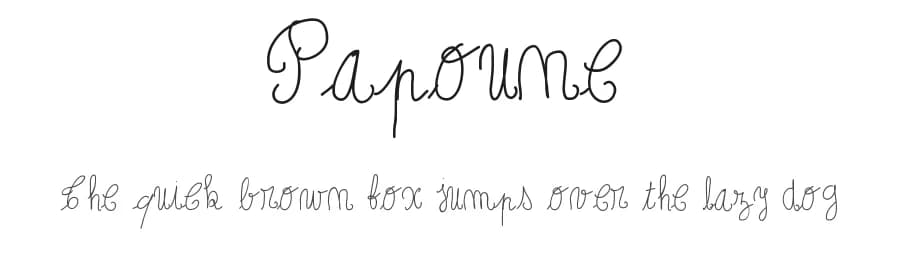 Papoune
The quick brown fox jumps over the lazy dog